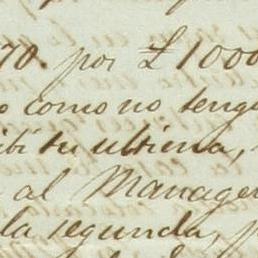 70. por £1000
como no tengo
tu ultima,
al Manager
la segunda,